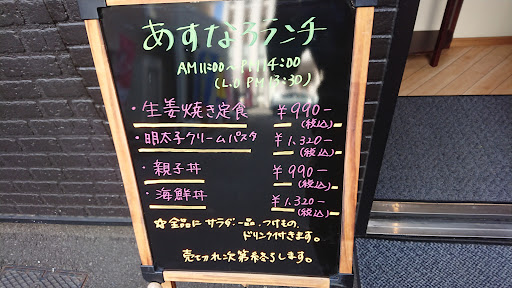 あすなろランチ
AM11:00～PM14:00
(L.O PM13:30)
・生姜焼き定食 ¥990-
(税込)
・明太子クリームパスタ ¥1,320-
(税込)
・親子丼 ¥990-
(税込)
・海鮮丼 ¥1,320-
(税込)
☆全品にサラダ、一品、つけもの、
ドリンク付きます。
売り切れ次第終了します。